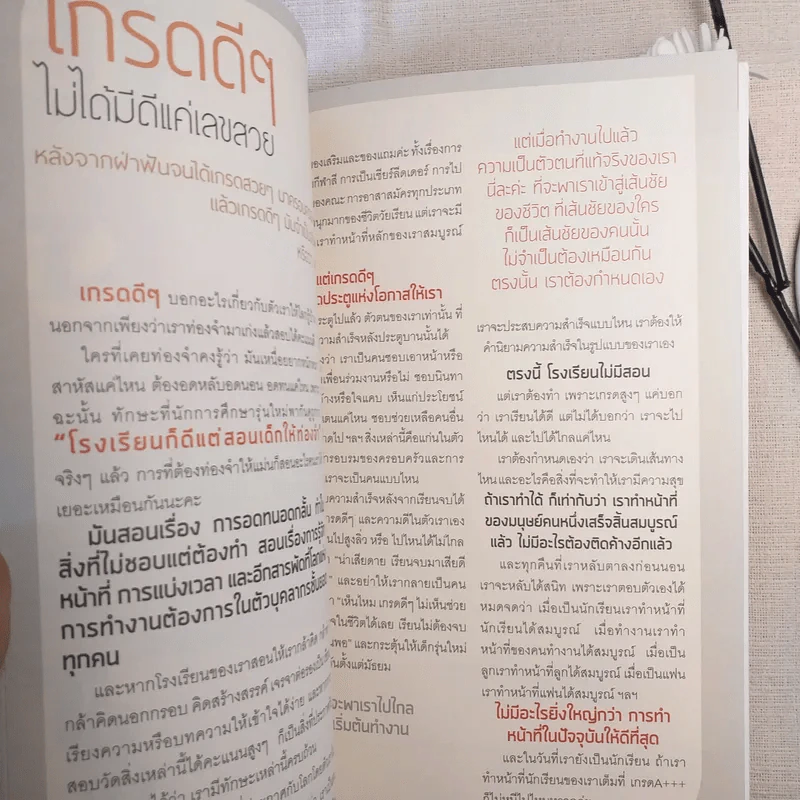 เกรดดีๆ
ไม่ได้มีดีแค่เลขสวย
หลังจากฝ่าฟันจนได้เกรดสวยๆ
แล้วเกรดดีๆ
เกรดดีๆ บอกอะไรเกี่ยวกับตัวเรา
นอกจากเพียงว่าเราท่องจำมาเก่งแล้วสอบได้
ใครที่เคยท่องจำคงรู้ว่า มันเหนื่อย
สาหัสแค่ไหน ต้องอดหลับอดนอน อดทน
ฉะนั้น ทักษะที่นักการศึกษารุ่นใหม่
“โรงเรียนก็ดีแต่สอนเด็กให้ท่องจำ
จริงๆ แล้ว การที่ต้องท่องจำให้แม่นก็สอนอะไร
เยอะเหมือนกันนะคะ
มันสอนเรื่อง การอดทนอดกลั้น
สิ่งที่ไม่ชอบแต่ต้องทำ สอนเรื่องการรู้จัก
หน้าที่ การแบ่งเวลา และอีกสารพัดที่โลก
การทำงานต้องการในตัวบุคลากร
ทุกคน
และหากโรงเรียนของเราสอนให้เรากล้าคิด
กล้าคิดนอกกรอบ คิดสร้างสรรค์ เจรจาต่อรอง
เรียงความหรือบทความให้เข้าใจได้ง่าย
สอบวัดสิ่งเหล่านี้ได้คะแนนสูงๆ ก็เป็นสิ่งที่
ได้ว่า เรามีทักษะเหล่านี้ครบถ้วน
องเสริมและของแถมค่ะ ทั้งเรื่องการ
กีฬาสี การเป็นเชียร์ลีดเดอร์ การไป
ของคณะ การอาสาสมัครทุกประเภท
นุกมากของชีวิตวัยเรียน แต่เราจะมี
ราทำหน้าที่หลักของเราสมบูรณ์
แต่เกรดดีๆ
ประตูแห่งโอกาสให้เรา
ระตูไปแล้ว ตัวตนของเราเท่านั้น ที่
ความสำเร็จหลังประตูบานนั้นได้
ว่า เราเป็นคนชอบเอาหน้าหรือ
เพื่อนร่วมงานหรือไม่ ชอบนินทา
ว้างหรือใจแคบ เห็นแก่ประโยชน์
ตนแค่ไหน ชอบช่วยเหลือคนอื่น
ดไป ฯลฯ สิ่งเหล่านี้คือแก่นในตัว
ารอบรมของครอบครัวและการ
ราจะเป็นคนแบบไหน
ความสำเร็จหลังจากเรียนจบได้
กรดดีๆ และความดีในตัวเราเอง
นไปสูงลิ่ว หรือ ไปไหนได้ไม่ไกล
“น่าเสียดาย เรียนจบมาเสียดี
และอย่าให้เรากลายเป็นคน
“เห็นไหม เกรดดีๆ ไม่เห็นช่วย
จในชีวิตได้เลย เรียนไม่ต้องจบ
พอ” และกระตุ้นให้เด็กรุ่นใหม่
ันตั้งแต่มัธยม
จะพาเราไปไกล
เริ่มต้นทำงาน
แต่เมื่อทำงานไปแล้ว
ความเป็นตัวตนที่แท้จริงของเรา
นี่ละค่ะ ที่จะพาเราเข้าสู่เส้นชัย
ของชีวิต ที่เส้นชัยของใคร
ก็เป็นเส้นชัยของคนนั้น
ไม่จำเป็นต้องเหมือนกัน
ตรงนั้น เราต้องกำหนดเอง
เราจะประสบความสำเร็จแบบไหน เราต้องให้
คำนิยามความสำเร็จในรูปแบบของเราเอง
ตรงนี้ โรงเรียนไม่มีสอน
แต่เราต้องทำ เพราะเกรดสูงๆ แค่บอก
ว่า เราเรียนได้ดี แต่ไม่ได้บอกว่า เราจะไป
ไหนได้ และไปได้ไกลแค่ไหน
เราต้องกำหนดเองว่า เราจะเดินเส้นทาง
ไหน และอะไรคือสิ่งที่จะทำให้เรามีความสุข
ถ้าเราทำได้ ก็เท่ากับว่า เราทำหน้าที่
ของมนุษย์คนหนึ่งเสร็จสิ้นสมบูรณ์
แล้ว ไม่มีอะไรต้องติดค้างอีกแล้ว
และทุกคืนที่เราหลับตาลงก่อนนอน
เราจะหลับได้สนิท เพราะเราตอบตัวเองได้
หมดจดว่า เมื่อเป็นนักเรียนเราทำหน้าที่
นักเรียนได้สมบูรณ์ เมื่อทำงานเราทำ
หน้าที่ของคนทำงานได้สมบูรณ์ เมื่อเป็น
ลูกเราทำหน้าที่ลูกได้สมบูรณ์ เมื่อเป็นแฟน
เราทำหน้าที่แฟนได้สมบูรณ์ ฯลฯ
ไม่มีอะไรยิ่งใหญ่กว่า การทำ
หน้าที่ในปัจจุบันให้ดีที่สุด
และในวันที่เรายังเป็นนักเรียน ถ้าเรา
ทำหน้าที่นักเรียนของเราเต็มที่ เกรดA+++